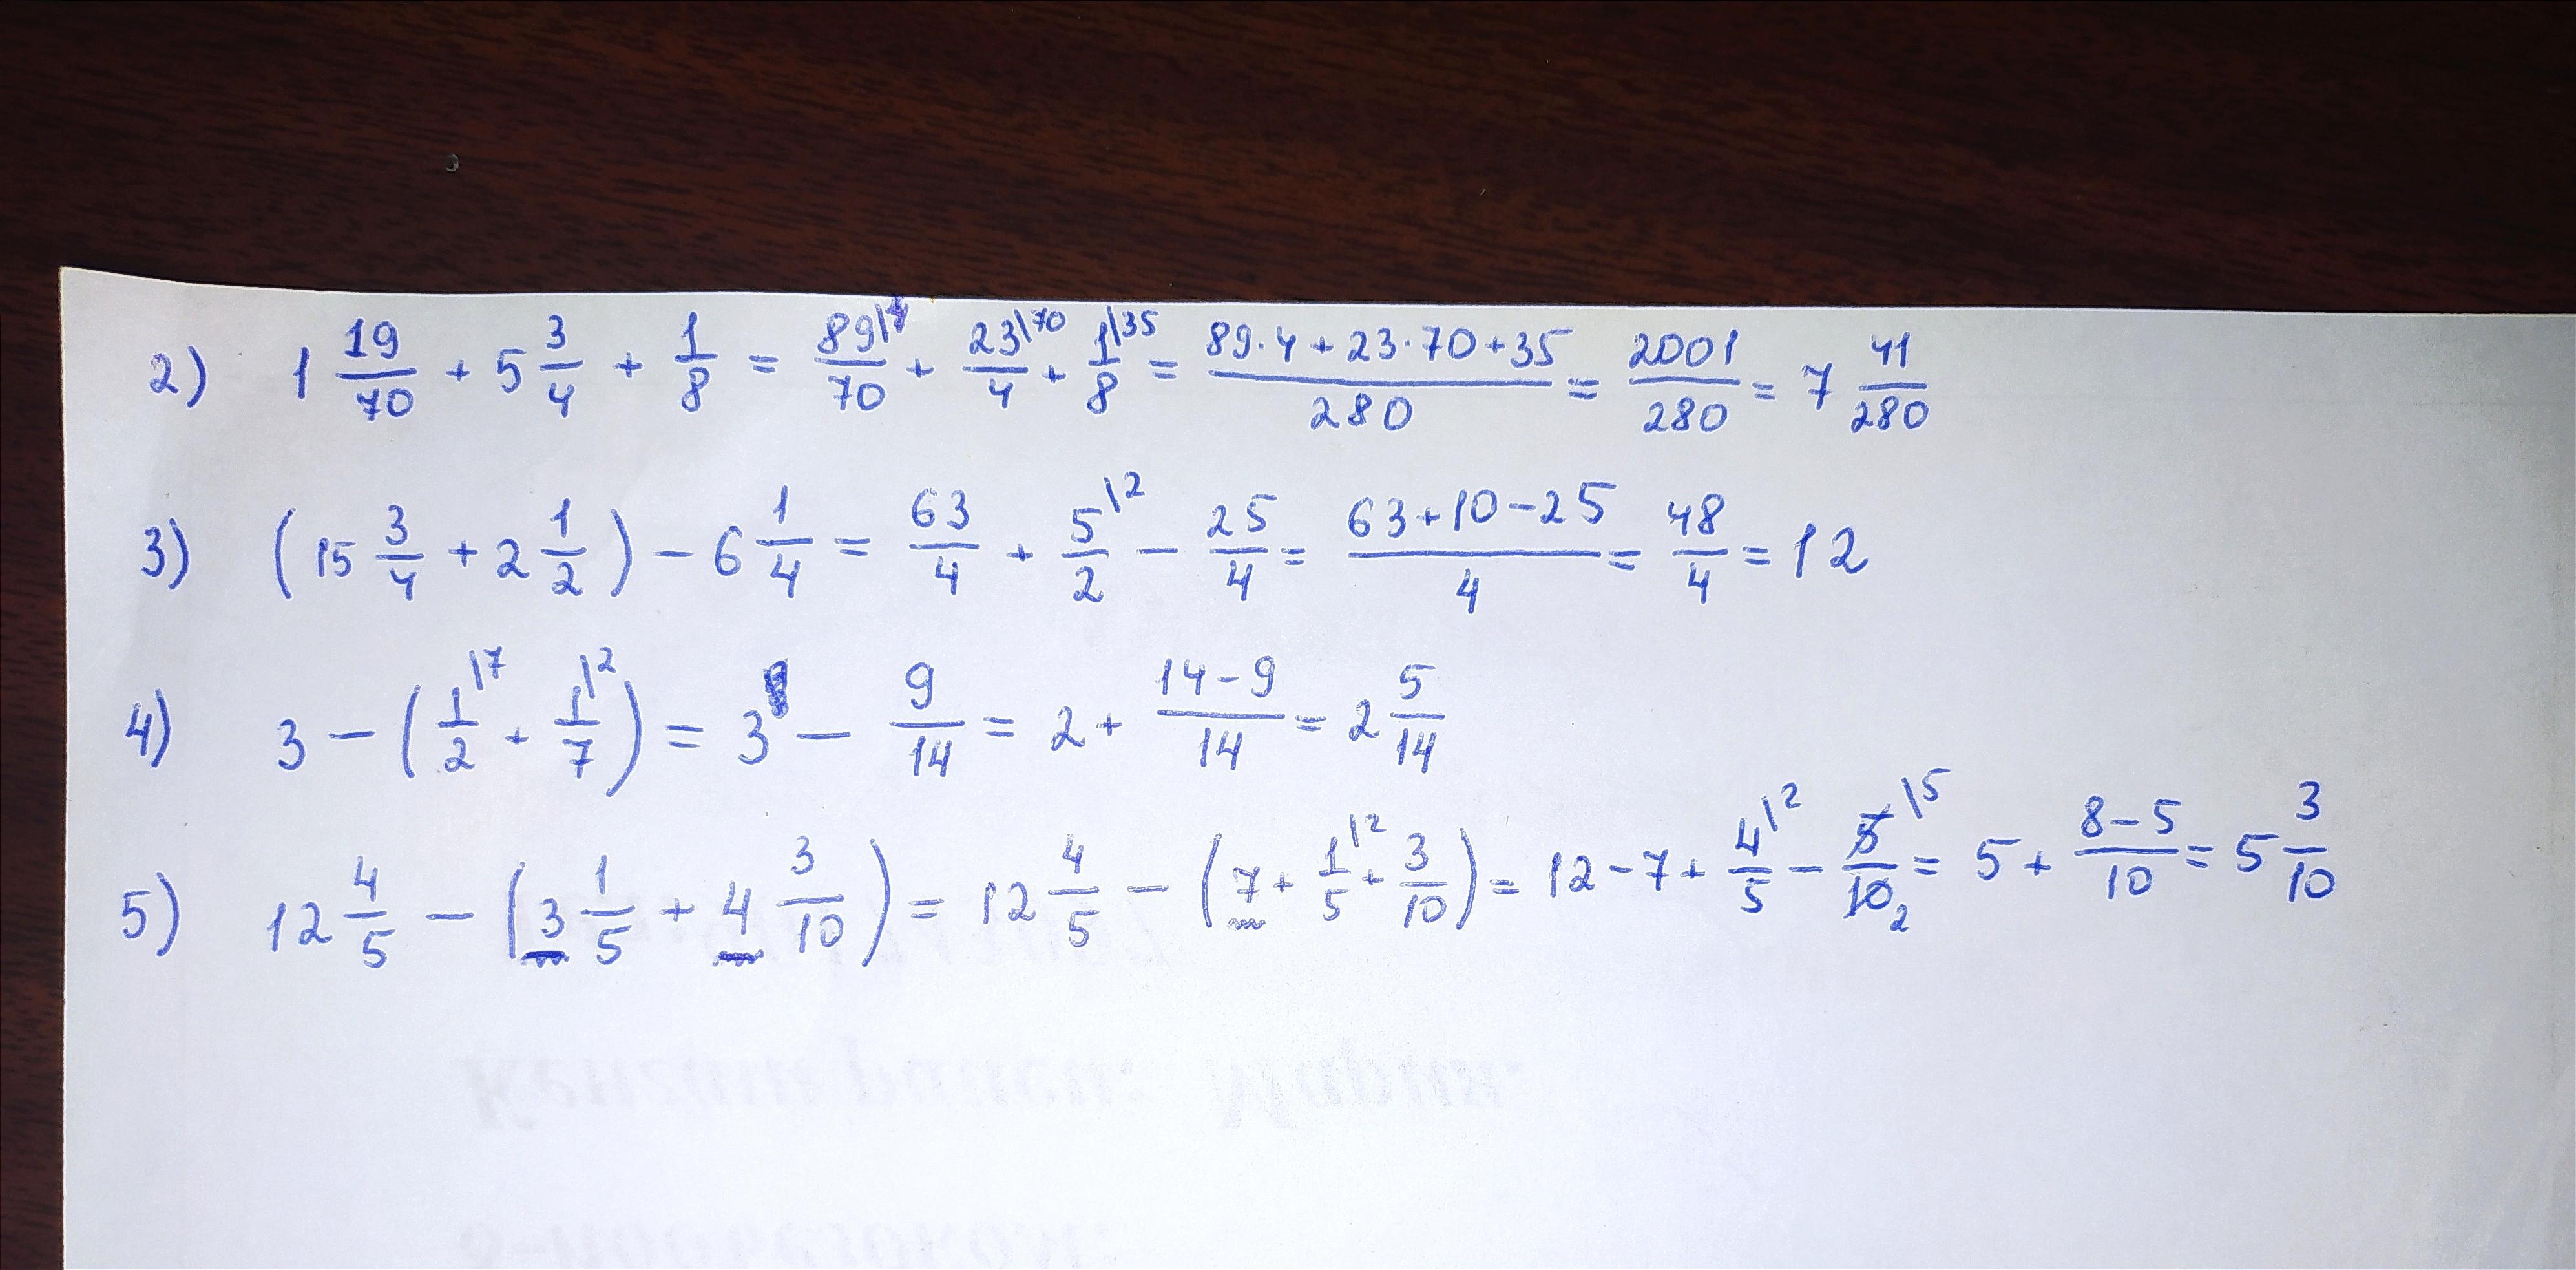 2) 1 19/70 + 5 3/4 + 1/8 = 89\4/70 + 23\70/4 + 1\35/8 = (89·4+23·70+35)/280 = 2001/280 = 7 41/280
3) (15 3/4 + 2 1/2) - 6 1/4 = 63/4 + 5\2/2 - 25/4 = (63+10-25)/4 = 48/4 = 12
4) 3 - (1\7/2 + 1\2/7) = 3 - 9/14 = 2 + (14-9)/14 = 2 5/14
5) 12 4/5 - (3 1/5 + 4 3/10) = 12 4/5 - (7 + 1\2/5 + 3/10) = 12-7+ 4\2/5 - 5\5/10 2 = 5 + (8-5)/10 = 5 3/10